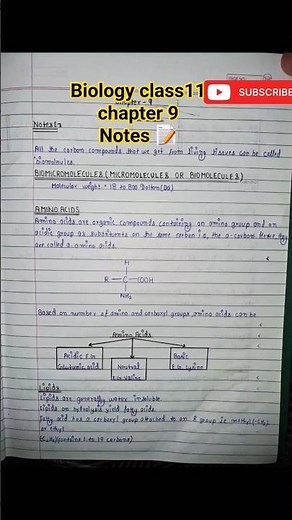 Biology class11
SUBSCRIBE
chapter 9
Notes 📝
Chapter - 9
Notes:-
All the carbon compounds that we get from living tissues can be called
biomolecules.
BIOMICROMOLECULES (MICROMOLECULES OR BIOMOLECULES)
Molecular weight = 18 to 800 Dalton (Da)
AMINO ACIDS
Amino acids are organic compounds containing an amino group and an
acidic group as substituents on the same carbon i.e, the α-carbon. Hence, they
are called α amino acids.
H
R — C — COOH
NH₂
Based on number of amino and carboxyl groups amino acids can be
Amino Acids
Acidic E.g.
Glutamic acid
Neutral
E.g. Valine
Basic
E.g. Lysine
Lipids
Lipids are generally water insoluble.
Lipids on hydrolysis yield fatty acids.
Fatty acid has a carboxyl group attached to an R group i.e. methyl (-CH₃)
or ethyl
(C₂H₅) (contains 1 to 19 carbons)